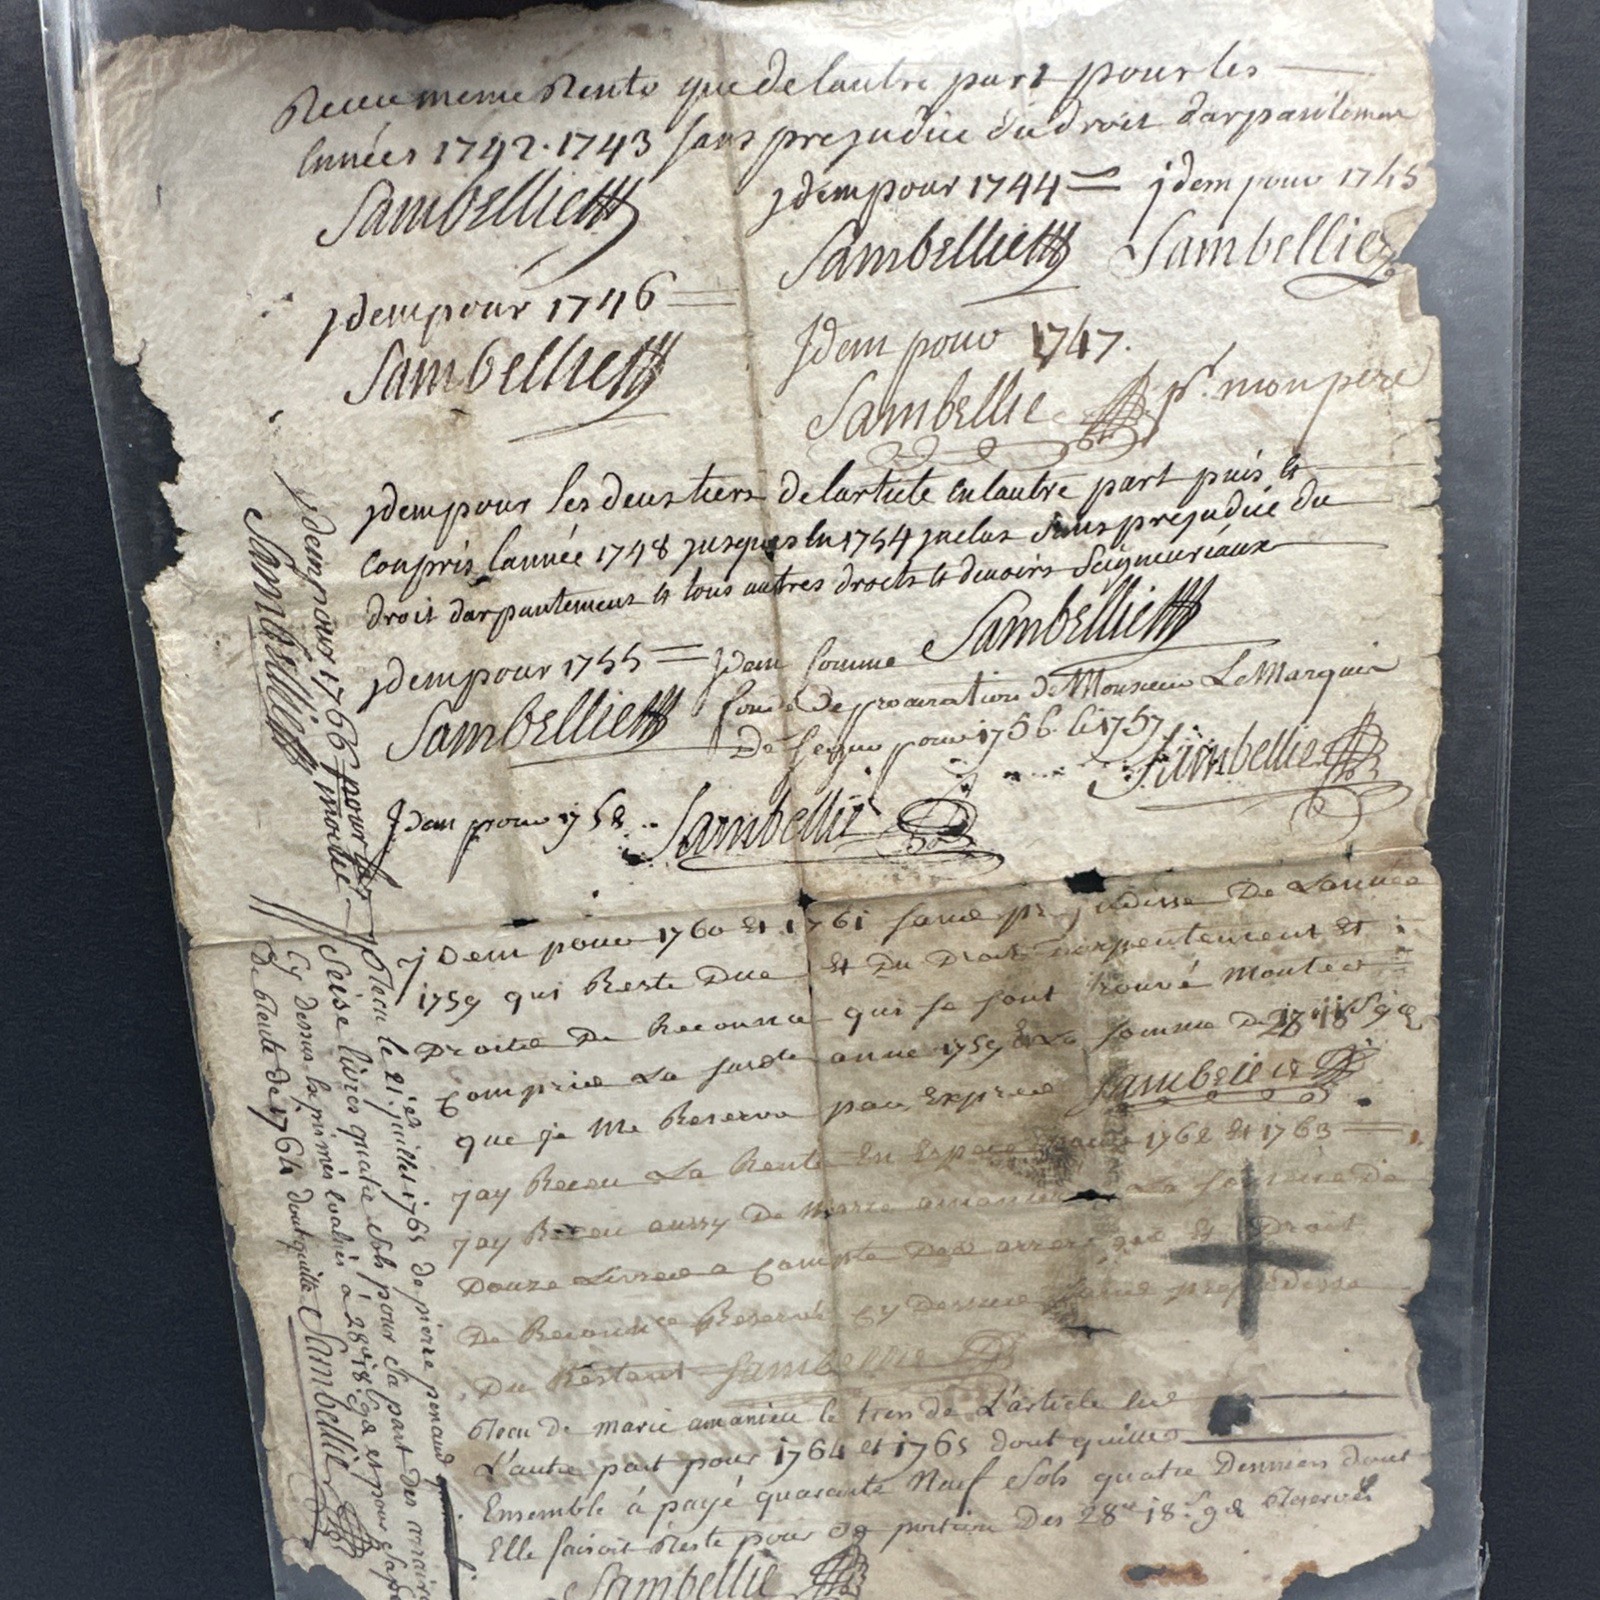 Receu meme Rente que de lautre part pour les
années 1742. 1743 sans prejudice du droit darpantement
Sambellie
jdem pour 1744 =
Sambellie
jdem pour 1745
Sambellie
jdem pour 1746 =
Sambellie
Jdem pour 1747.
Sambellie pr. mon pere
jdem pour les deus tiers de larticle en lautre part puis et
conpris lannée 1748 jusques en 1754 jnclus sans prejudice du
droit darpantement et tous autres droits et devoirs Seigneuriaux
Sambellie
jdem pour 1755 =
Sambellie
jdem comme
fondé de procuration de Monsieur Le Marquis
De pour 1756. et 1757
Sambellie
Jdem pour 1758
Sambellie
jdem pour 1760 et 1761 sans prejudisse De Lannée
1759 qui Reste Due et Du Droit Darpentement et
Droits De Reconnce qui se sont trouvé monter
Compris La susdte anne 1759 La somme De 28 18s 9d
que je me Reserve par Exprés Sambellie
jay Receu La Rente En Espece pour 1762 et 1763
jay Receu aussy De Marie amanieu La somme de
Douze Livres a Compte Des arrerages et Droit
De Reconnce Reservés Cy Dessus sans prejudisse
Du Restant Sambellie
Receu de marie amanieu le tiers de L'article
L'autre part pour 1764 et 1765 dont quitte
Ensemble à payé quarante Neuf sols quatre Denniers dont
Elle faisoit Reste pour sa portion Des 28tt 18s. 9d Reservés
Sambellie
jdem pour 1766 pour la moitié
Sambellie
Receu le 21. juillet 1765 de pierre penaud
Seise livres quatre sols pour sa part des
Cy dessus exprimés à 28tt 18s 9d et pour
De Rente de 1764 dont quitte Sambellie